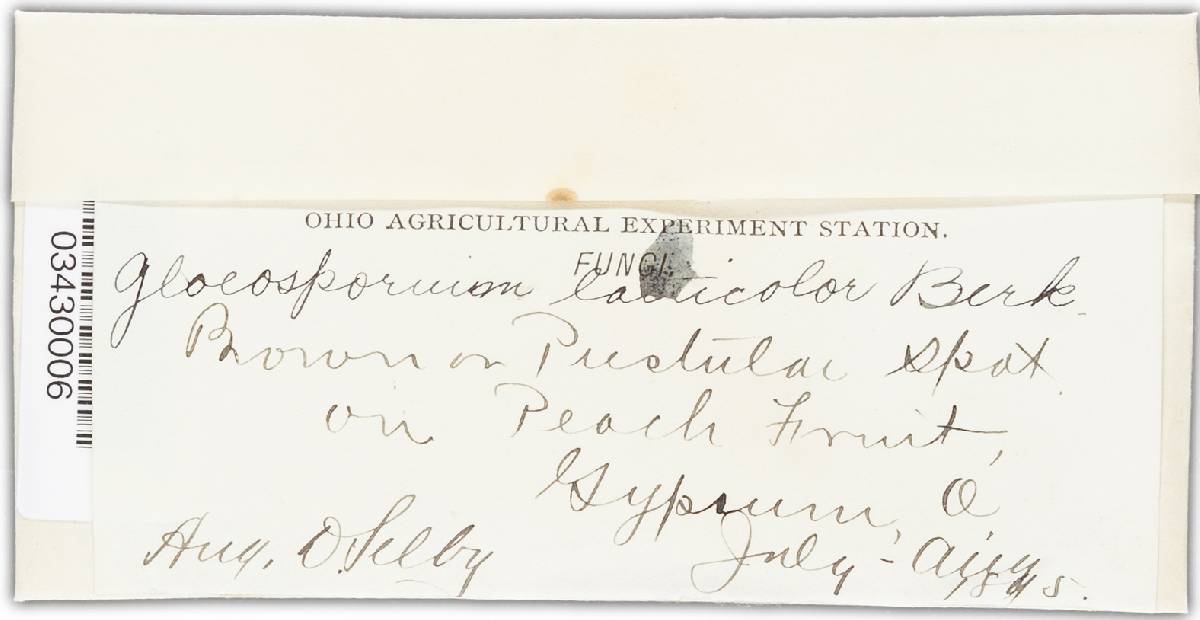 OHIO AGRICULTURAL EXPERIMENT STATION.
FUNGI.
Gloeosporium laeticolor Berk.
Brown or Pustular Spot
on Peach Fruit,
Gypsum, O.
Aug. D. Selby July - Aug
1895.
03430006